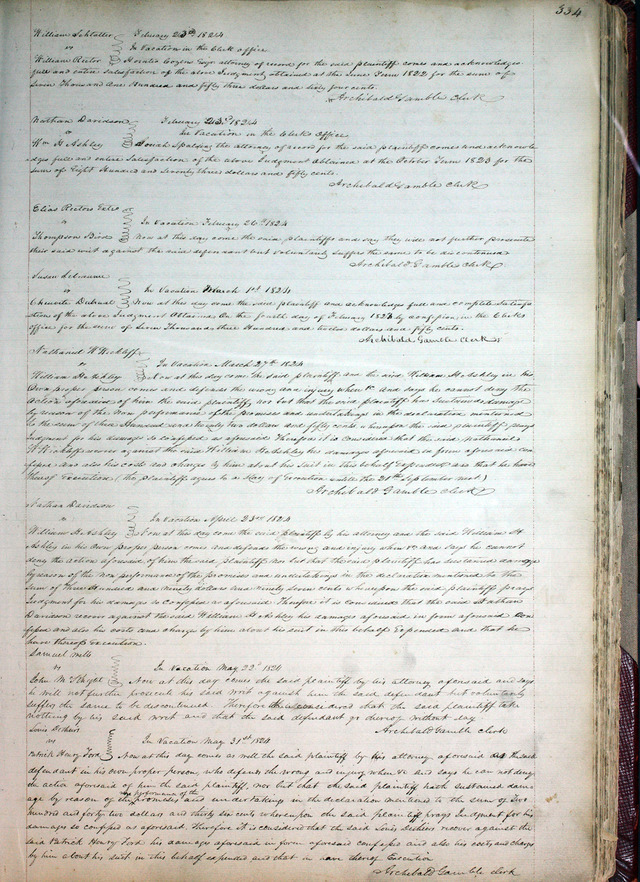 334
William Schlatter February 23rd 1824
vs In Vacation in the Clerk office
William Rector Horatio Cozens Esqr attorney of record for the said plaintiff comes and acknowledges
full and entire satisfaction of the above Judgment obtained at the June Term 1822 for the sum of
Seven Thousand One Hundred and fifty three dollars and sixty four cents.
Archibald Gamble Clerk
Nathan Davidson February 23rd 1824
vs In Vacation in the Clerks Office
Wm H Ashley Josiah Spalding the attorney of record for the said plaintiff comes and acknowle
edges full and entire Satisfaction of the above Judgment Obtained at the October Term 1823 for the
sum of Eight Hundred and Seventy three dollars and fifty cents.
Archibald Gamble Clerk
Elias Rectors
vs In Vacation February 26th 1824
Thompson Bird Now at this day come the said plaintiffs and say they will not further prosecute
their said writ against the said defendant but voluntarily suffers the same to be discontinued
Archibald Gamble Clerk
vs In Vacation March 1st 1824
Now at this day come the said plaintiff and acknowledges full and complete satisfac
tion of the above Judgment Obtained On the fourth day of February 1823 by confession, in the Clerks
office for the sum of Seven Thousand three Hundred and twelve dollars and fifty cents.
Archibald Gamble Clerk
Nathaniel W Wickliff
vs In Vacation March 27th 1824
William H Ashley Now at this day come the said plaintiff and the said William H Ashley in his
Own proper person comes and defends the wrong and injury when &c and says he cannot deny the
action aforesaid of him the said plaintiff, nor but that the said plaintiff has Sustained damage
by reason of the non performance of the promises and undertakings in the declaration mentioned
to the sum of three Hundred and twenty two dollars and fifty cents whereupon the said plaintiff prays
Judgment for his damage so confessed as aforesaid Therefore it is considered that the said Nathaniel
W Wickliff recover against the said William H Ashley his damages aforesaid in form aforesaid con
fessed And also his costs and charges by him about his Suit in this behalf expended and that he have
thereof execution (the plaintiff agrees to a Stay of Execution until the 20th September next)
Archibald Gamble Clerk
Nathan Davidson
vs In Vacation April 23rd 1824
William H. Ashley Now at this day come the said plaintiff by his attorney and the said William H
Ashley in his Own proper person comes and defends the wrong and injury when &c and says he cannot
deny the action aforesaid of him the said, plaintiff nor but that the said plaintiff has sustained damage
by reason of the non performance of the promises and undertakings in the declaration mentioned to the
sum of three Hundred and ninety dollars and ninety seven cents whereupon the said plaintiff prays
Judgment for his damages so confessed as aforesaid Therefore it is considered that the said Nathan
Davidson recover against the said William H Ashley his damages aforesaid in form aforesaid Con
fessed and also his costs and charges by him about his suit in this behalf expended and that he
have thereof execution.
Samuel Wells
vs In Vacation May 22d 1824
John M. Now at this day comes the said plaintiff by his attorney aforesaid and says
he will not further prosecute his said writ against him the said defendant but voluntarily
suffers the same to be discontinued. Therefore it is considered that the said plaintiff take
nothing by his said writ and that the said defendant go thereof without day
Archibald Gamble Clerk
Louis
vs In Vacation May 31st 1824
Patrick Henry Ford Now at this day comes as well the said plaintiff by his attorney aforesaid as the said
defendant in his own proper person, who defends the wrong and injury when &c and says he can not deny
the action aforesaid of him the said plaintiff, nor but that the said plaintiff hath sustained dam
age by reason of the non performance of the promises and undertaking in the declaration mentioned to the sum of Two
hundred and forty two dollars and thirty six cents whereupon the said plaintiff prays Judgment for his
damages so confessed as aforesaid. Therefore it is considered that the said Louis recover against the
said Patrick Henry Ford his damages aforesaid in form aforesaid confessed and also his costs and charges
by him about his suit in this behalf expended and that he have thereof Execution
Archibald Gamble clerk